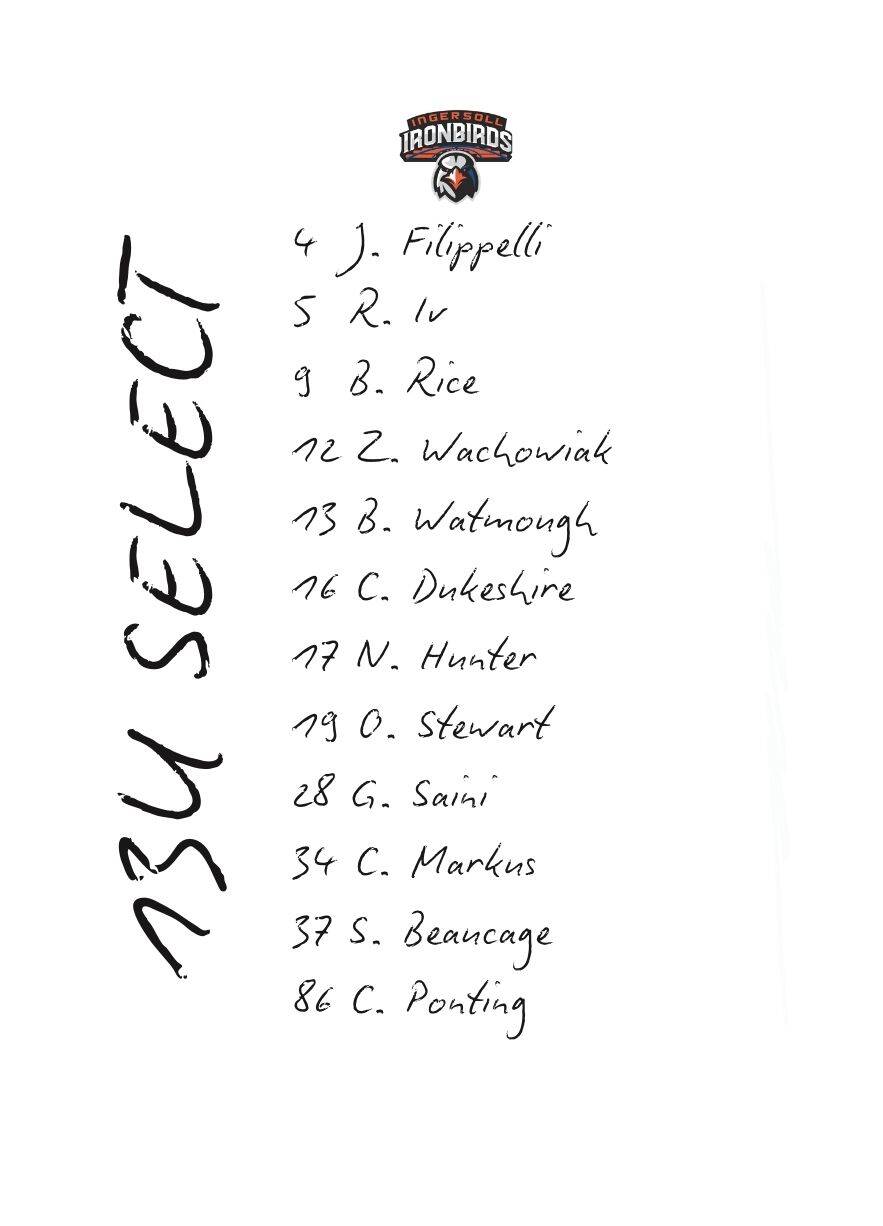 INGERSOLL
IRONBIRDS
13U SELECT
4 J. Filippelli
5 R. Iv
9 B. Rice
12 Z. Wachowiak
13 B. Watmough
16 C. Dukeshire
17 N. Hunter
19 O. Stewart
28 G. Saini
34 C. Markus
37 S. Beaucage
86 C. Ponting